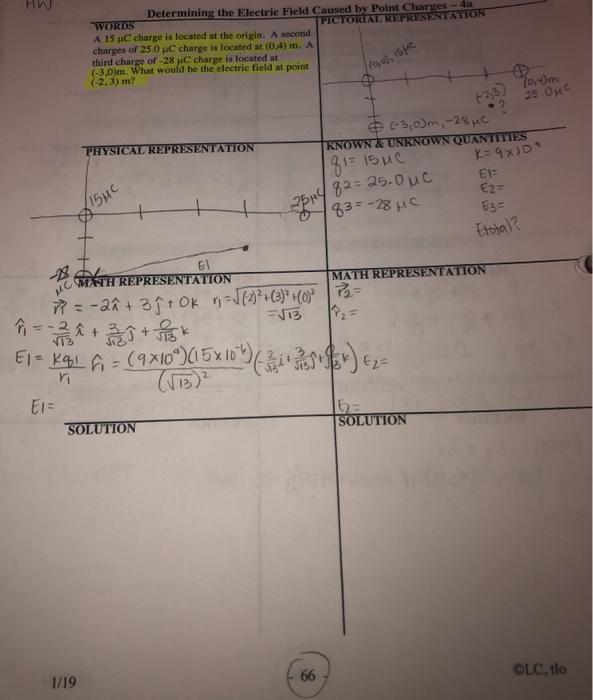 HW
Determining the Electric Field Caused by Point Charges – 4a
WORDS
A 15 µC charge is located at the origin. A second
charges of 25.0 µC charge is located at (0,4) m. A
third charge of -28 µC charge is located at
(-3,0)m. What would be the electric field at point
(-2, 3) m?
PICTORIAL REPRESENTATION
(0,0), 15µC
(0,4)m
25.0µC
(-2,3)
?
(-3,0)m, -28µC
PHYSICAL REPRESENTATION
15µC
25µC
-28
µC
E1
KNOWN & UNKNOWN QUANTITIES
q1= 15µC
q2= 25.0µC
q3= -28µC
K= 9x10⁹
E1=
E2=
E3=
Etotal?
MATH REPRESENTATION
r⃗1 = -2î + 3ĵ + 0k r1 = √(-2)²+(3)²+(0)²
=√13
r̂1 = -2/√13 î + 3/√13 ĵ + 0/√13 k
E1= Kq1/r1 r̂1 = (9x10⁹)(15x10⁻⁶)/(√13)² (-2/√13 i + 3/√13 j + 0/√13 k)
E1=
MATH REPRESENTATION
r⃗2=
r̂2=
E2=
E2=
SOLUTION
SOLUTION
1/19
66
©LC, tlo